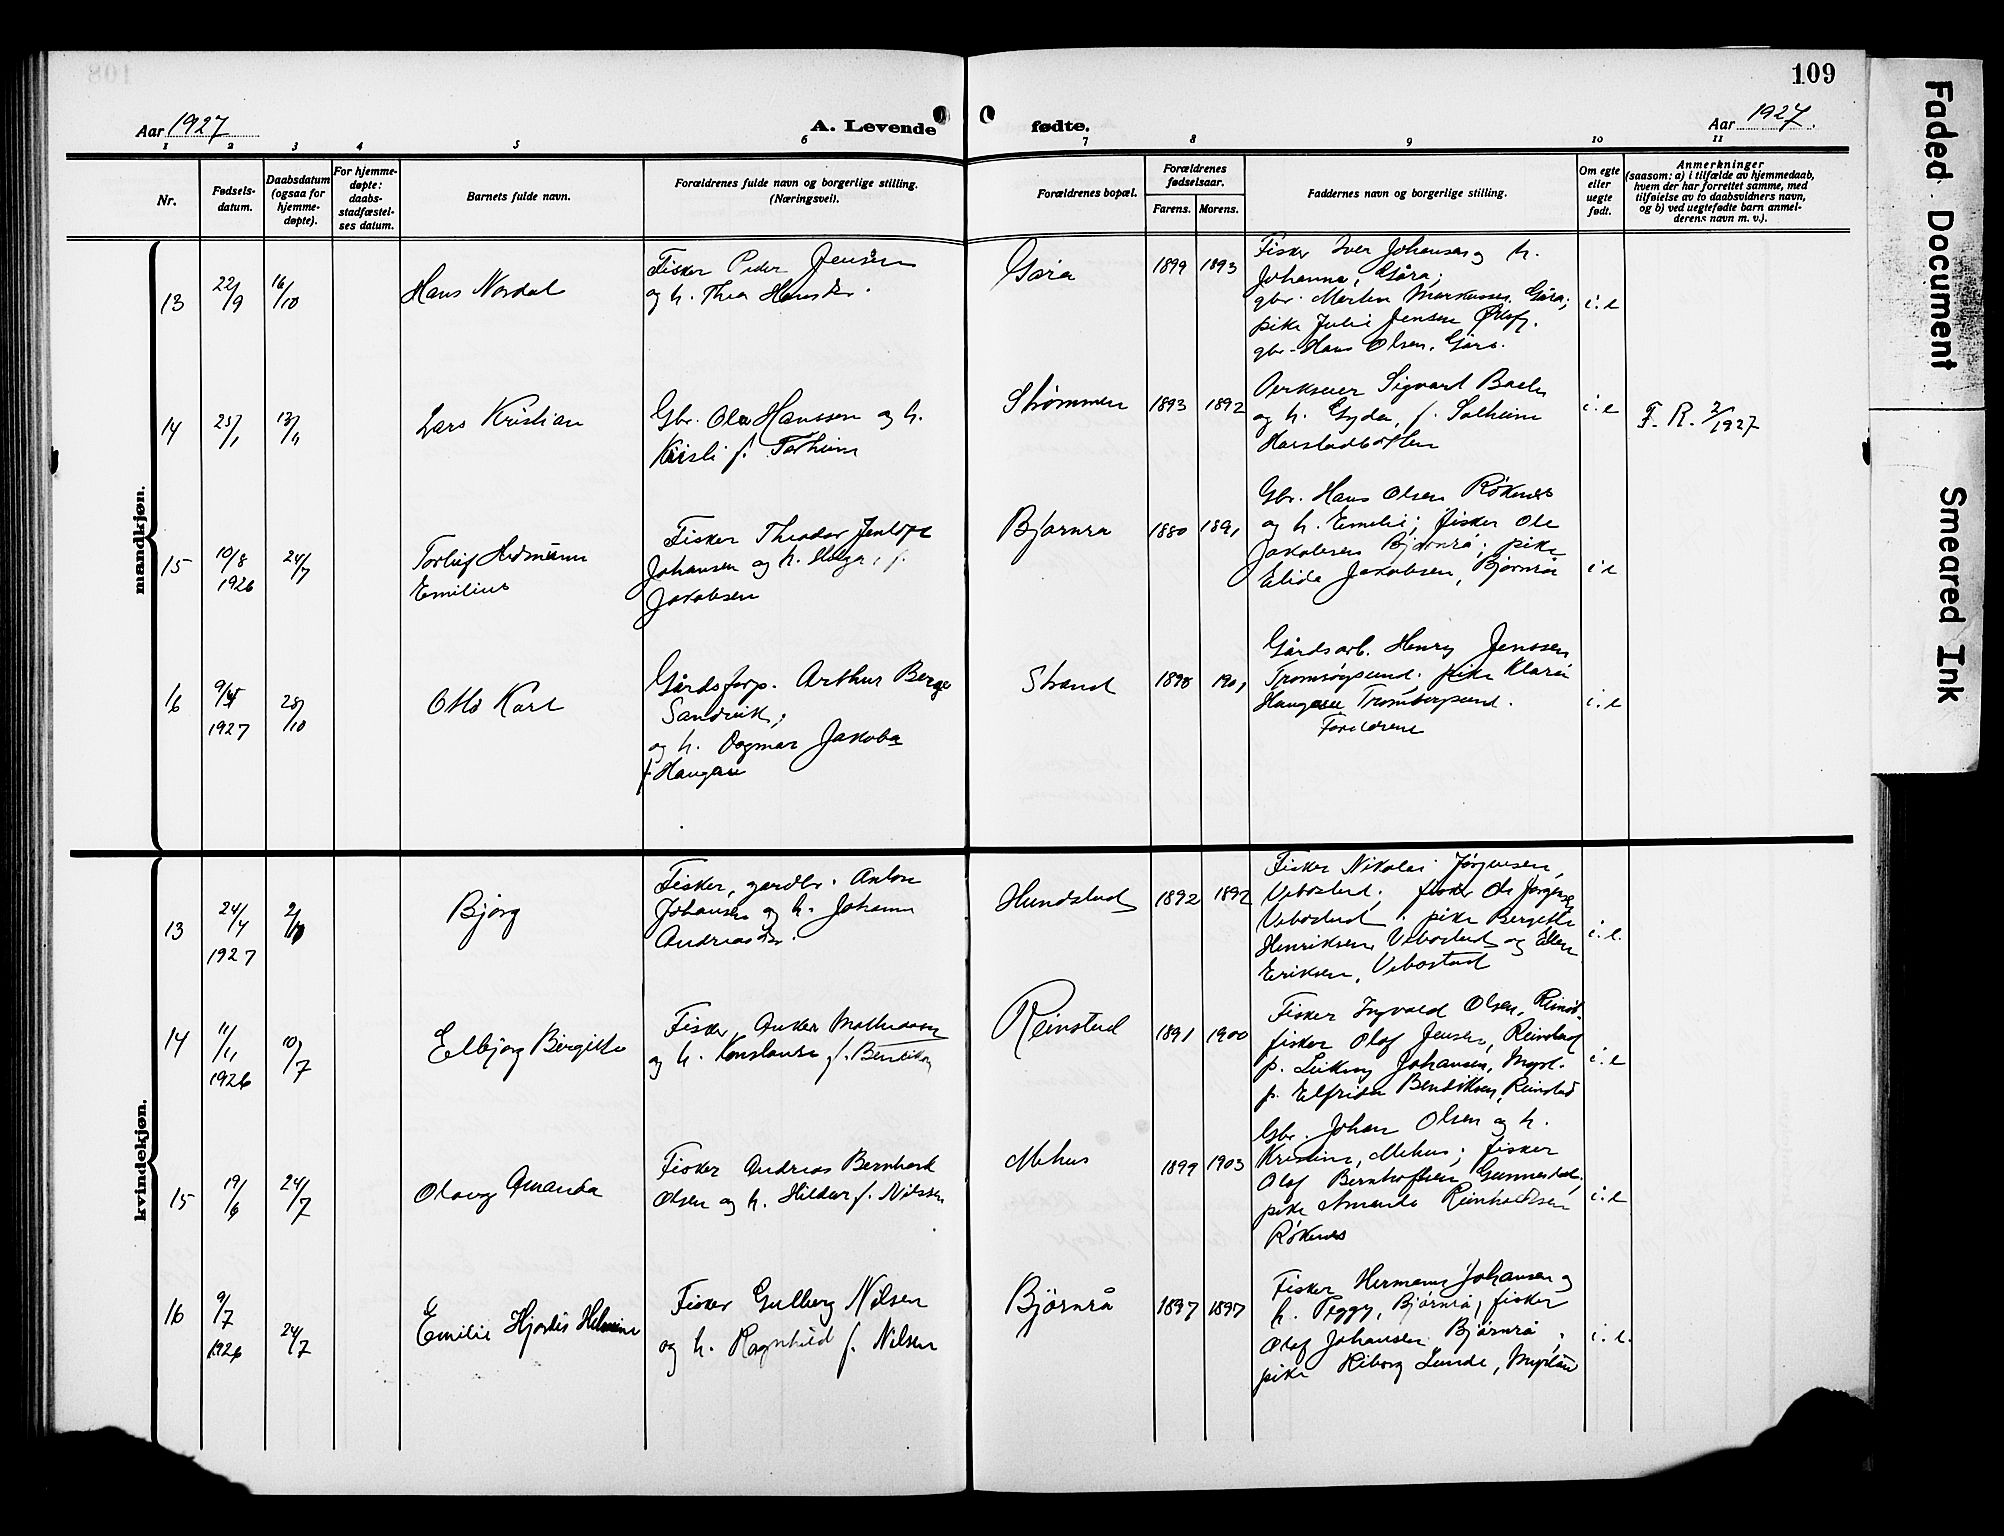 109
Aar 1927
A. Levende fødte.
Aar 1927.
1 2 3 4 5 6 7 8 9 10 11
Nr.
Fødsels-
datum.
Daabsdatum
(ogsaa for
hjemme-
døpte).
For hjemme-
døpte:
daabs-
stadfæstel-
ses datum.
Barnets fulde navn.
Forældrenes fulde navn og borgerlige stilling.
(Næringsvei).
Forældrenes bopæl.
Forældrenes
fødselsaar.
Farens. Morens.
Faddernes navn og borgerlige stilling.
Om egte
eller
uegte
født.
Anmerkninger
(saasom: a) i tilfælde av hjemmedaab,
hvem der har forrettet samme, med
tilføielse av to daabsvidners navn,
og b) ved uegtefødte barn anmel-
derens navn m. v.).
mandkjøn.
13
22/9
16/10
Hans Nordal
Fisker Peder Jensen
og h. Thea Hansdr.
Gåra
1899 1893
Fisker Iver Johansen og h.
Johanna, Gåra;
gbr. Martin Markussen Gåra;
pike Julie Jensen
gbr. Hans Olsen, Gåra.
i. e
14
25/1
13/11
Lars Kristian
Gbr. Ola Hanssen og h.
Kirsti f. Torheim
Strømmen
1893 1892
Sigvart
og h. Gyda, f. Solheim
Harstadbotten
i. e
F. R. 2/1927
15
10/8
1926
24/7
Torleif Hedmann
Emilius
Fisker Theodor Jentoft
Johansen og h. Helga, f.
Jakobsen
Bjørnrå
1880 1891
Gbr. Hans Olsen Røkenes
og h. Emelie; fisker Ole
Jakobsen Bjørnrå; pike
Elida Jakobsen, Bjørnrå
i. e
16
1927
28/10
Otto Karl
Gårdsforp. Arthur Berge
Sandvik;
og h. Dagmar Jakoba
f. Haugan
Strand
1898 1901
Gårdsarb. Henry Jenssen
Tromsøysund. pike Klara
Haugan
Foreldrene
i. e
kvindekjøn.
13
24/4
1927
Bjørg
Fisker, gardbr. Anton
Johansen og h. Johanna
Andreasdr.
Hundstad
1892 1892
Fisker Nikolai Jørgensen,
Vebostad; fisker Ole Jørgensen
Vebostad; pike Bergitte
Henriksen Vebostad og Ellen
Eriksen, Vebostad
i. e.
14
11/11
1926
10/7
Elbjørg Bergitte
Fisker, Anker Mathiassen
og h. Konstanse f. Bendiksen
Reinstad
1891 1900
Fisker Ingvald Olsen, Reinst.
fisker Olaf Jensen, Reinstad
p. Johansen, Myrl.
p. Elfrida Bendiksen, Reinstad
i. e
15
19/6
24/7
Olaug Amanda
Fisker Andreas Bernhard
Olsen og h. Hildur f. Nilssen
Mehus
1899 1903
Gbr. Johan Olsen og h.
Kristine, Mehus; fisker
Olaf Bernhoftsen Gunnestad,
pike Amanda Reinholdtsen
Røkenes
i. e
16
9/7
1926
24/7
Emilie Hjørdis Helmine
Fisker Gulberg Nilsen
og h. Ragnhild f. Nilsen
Bjørnrå
1897 1897
Fisker Hermann Johansen og
h. Peggy, Bjørnrå; fisker
Olaf Johansen Bjørnrå,
pike Lunde, Myrland
i. e.
Faded Document
Smeared Ink